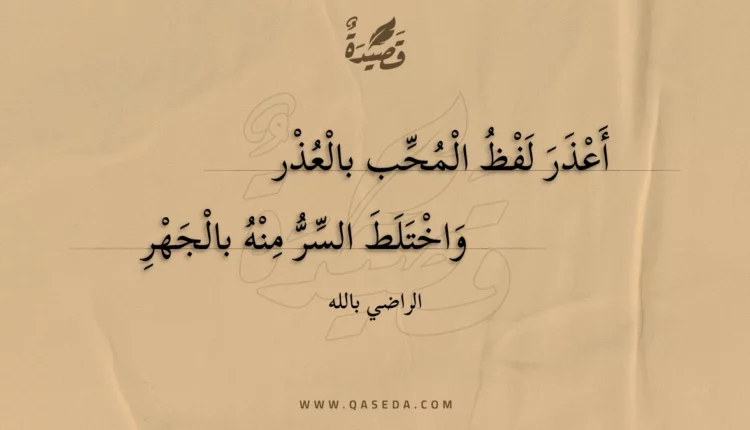 قَصِيدَةٌ
أَعْذَرَ لَفْظُ الْمُحِّب بالْعُذْر
وَاخْتَلَطَ السِّرُّ مِنْهُ بالْجَهْرِ
الراضي بالله
WWW.QASEDA.COM